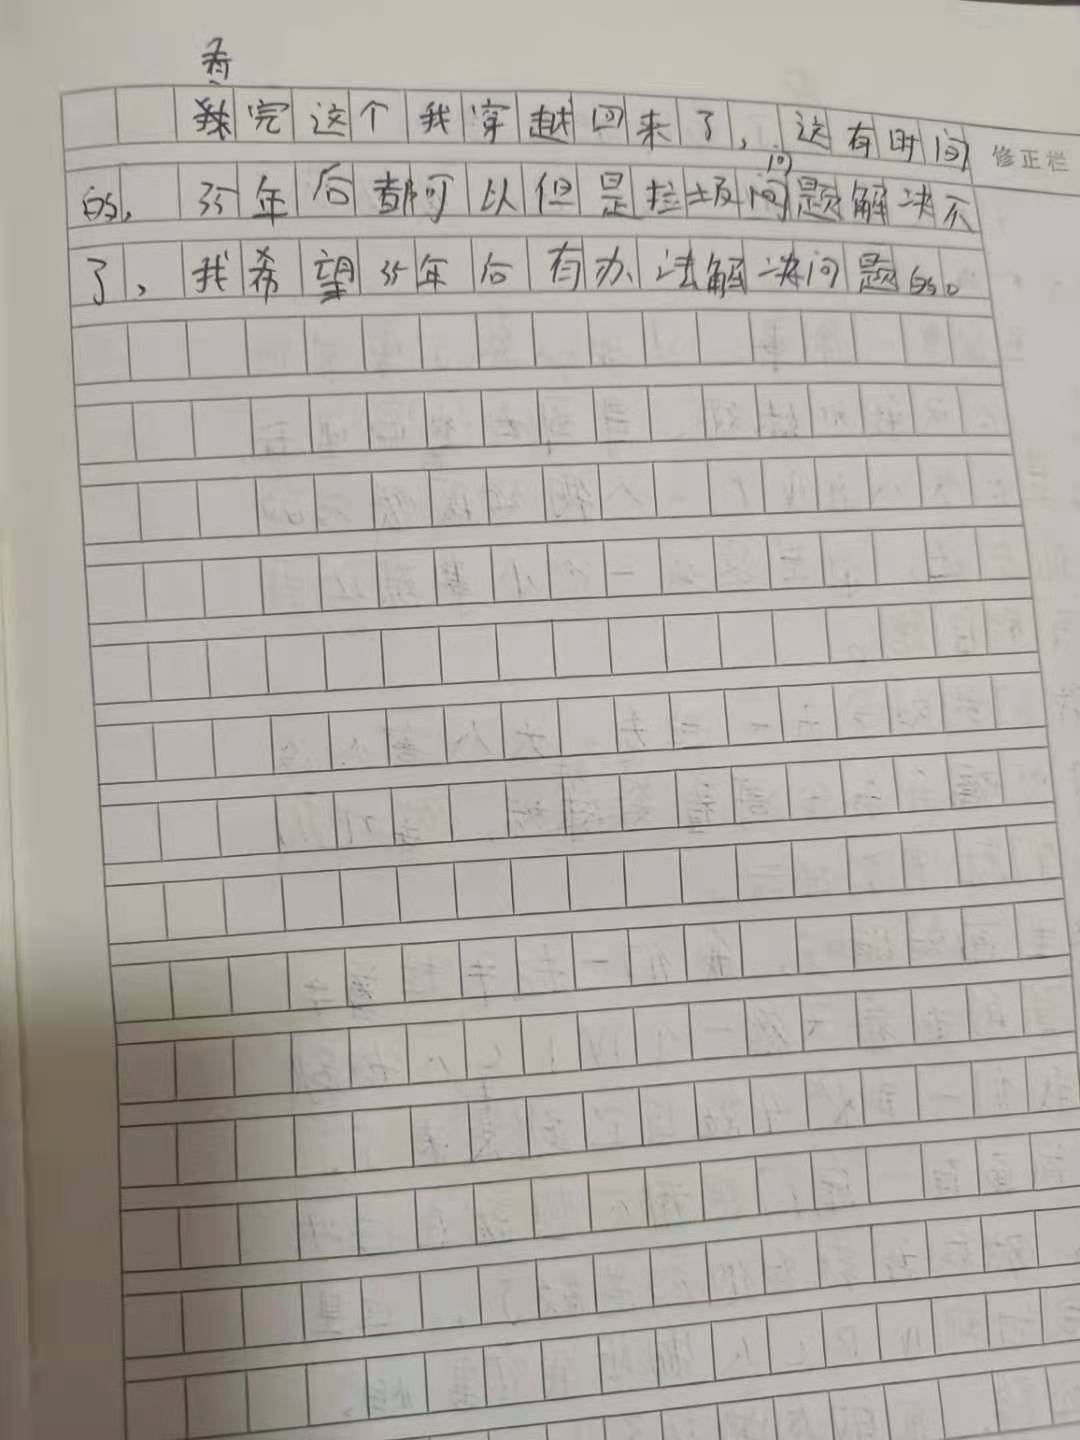 看
我完这个我穿越回来了，这有时间
修正栏
问
的，35年后都可以但是垃圾问题解决不
了，我希望35年后有办法解决问题的。